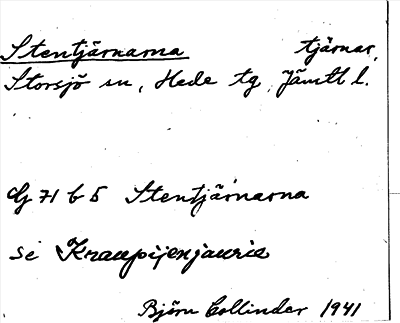 Stentjärnarna tjärnar,
Storsjö sn, Hede tg, Jämtl l.
G 71 b 5 Stentjärnarna
se Kraupijenjaurie
Björn Collinder 1941